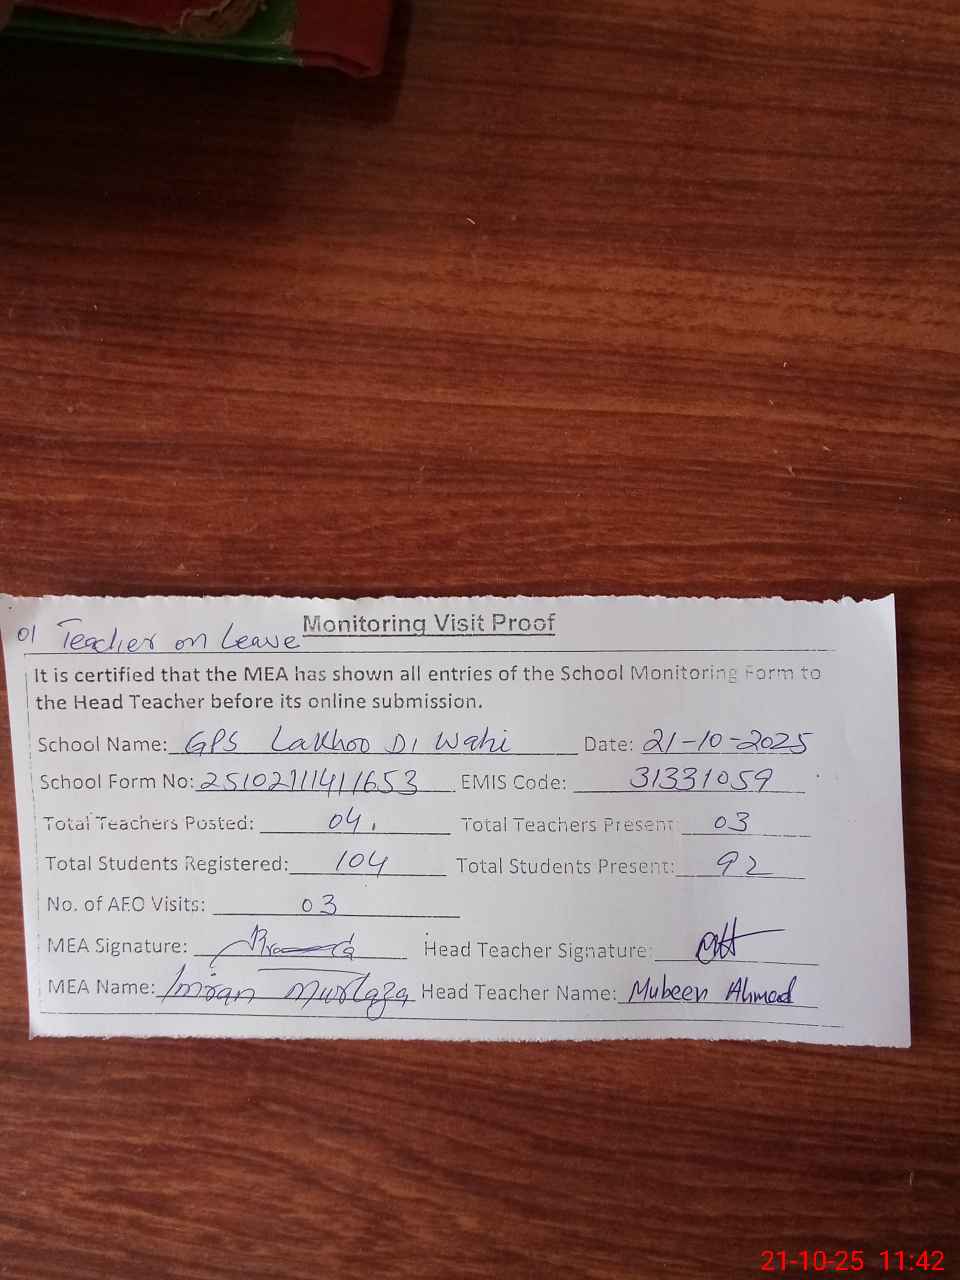 Monitoring Visit Proof
01 Teacher on Leave
It is certified that the MEA has shown all entries of the School Monitoring Form to
the Head Teacher before its online submission.
School Name: GPS Lakhoo Di Wahi Date: 21-10-2025
School Form No: 25102111411653 EMIS Code: 31331059
Total Teachers Posted: 04 Total Teachers Present: 03
Total Students Registered: 104 Total Students Present: 92
No. of AEO Visits: 03
MEA Signature: Head Teacher Signature:
MEA Name: Imran Murtaza Head Teacher Name: Mubeen Ahmad
21-10-25 11:42